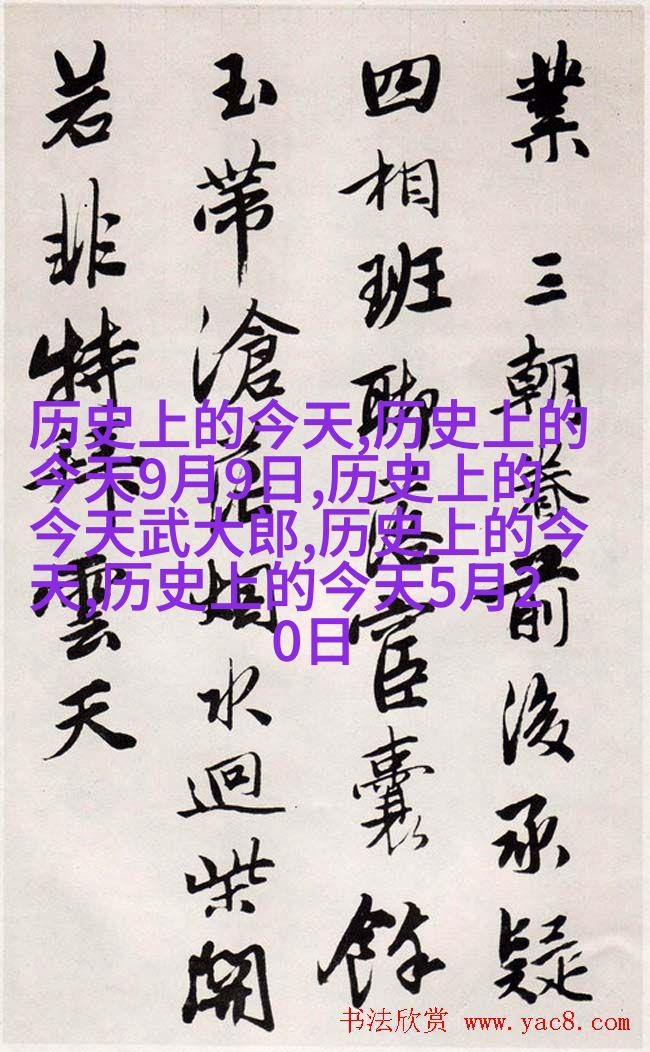 業 三朝眷前後承疑
四相班聯宦囊餘
玉帶滄茫烟水迴柴開
若非特雲天
历史上的今天,历史上的
今天9月9日,历史上的
今天武大郎,历史上的今
天,历史上的今天5月2
0日
书法欣赏 www.yac8.com